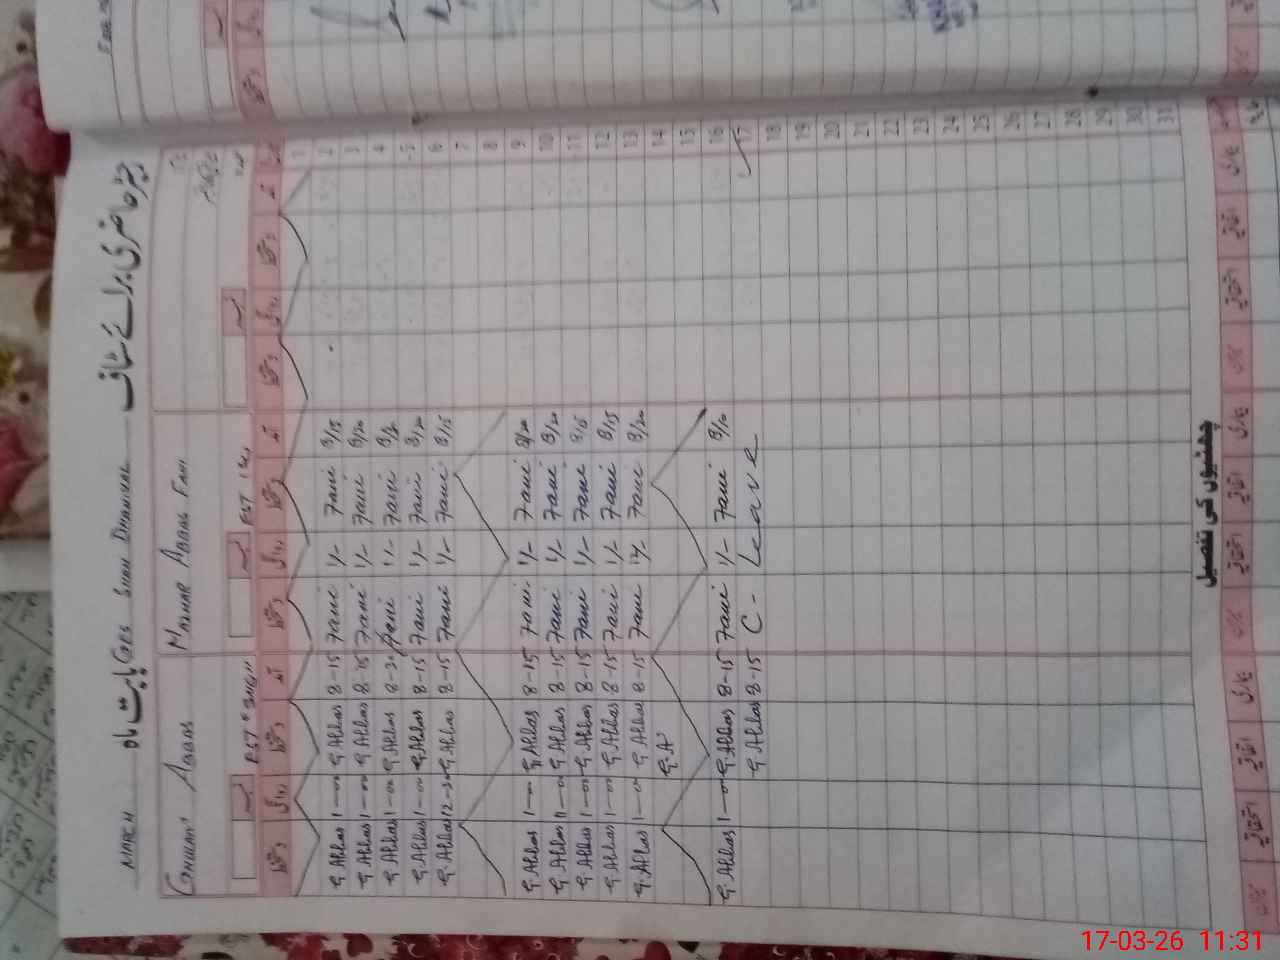 رجسٹر حاضری برائے سٹاف بابت ماہ GBS SHAH DHAMIAL MARCH
GHULAM ABBAS
MAZHAR ABBAS FANI
PST
آمد دستخط روانگی دستخط
1
2 8/15 Fani 1/- Fani 8-15 G.Abbas 1-00 G.Abbas
3 8/20 Fani 1/- Fani 8-15 G.Abbas 1-00 G.Abbas
4 Fani 1/- Fani G.Abbas 1-00 G.Abbas
5 8/20 Fani 1/- Fani 8-15 G.Abbas 1-00 G.Abbas
6 8/15 Fani 1/- Fani 8-15 G.Abbas 12-30 G.Abbas
7
8
9 8/20 Fani 1/- Fani 8-15 G.Abbas 1-00 G.Abbas
10 8/20 Fani 1/- Fani 8-15 G.Abbas 1-00 G.Abbas
11 8/15 Fani 1/- Fani 8-15 G.Abbas 1-00 G.Abbas
12 8/15 Fani 1/- Fani 8-15 G.Abbas 1-00 G.Abbas
13 8/20 Fani Fani 8-15 G.Abbas 1-00 G.Abbas
14 G.A
15
16 8/10 Fani 1/- Fani 8-15 G.Abbas 1-00 G.Abbas
17 C - Leave 8-15 G.Abbas
18
19
20
21
22
23
24
25
26
27
28
29
30
31
چھٹیوں کی تفصیل
بیماری اتفاقیہ استحقاقیہ
17-03-26 11:31